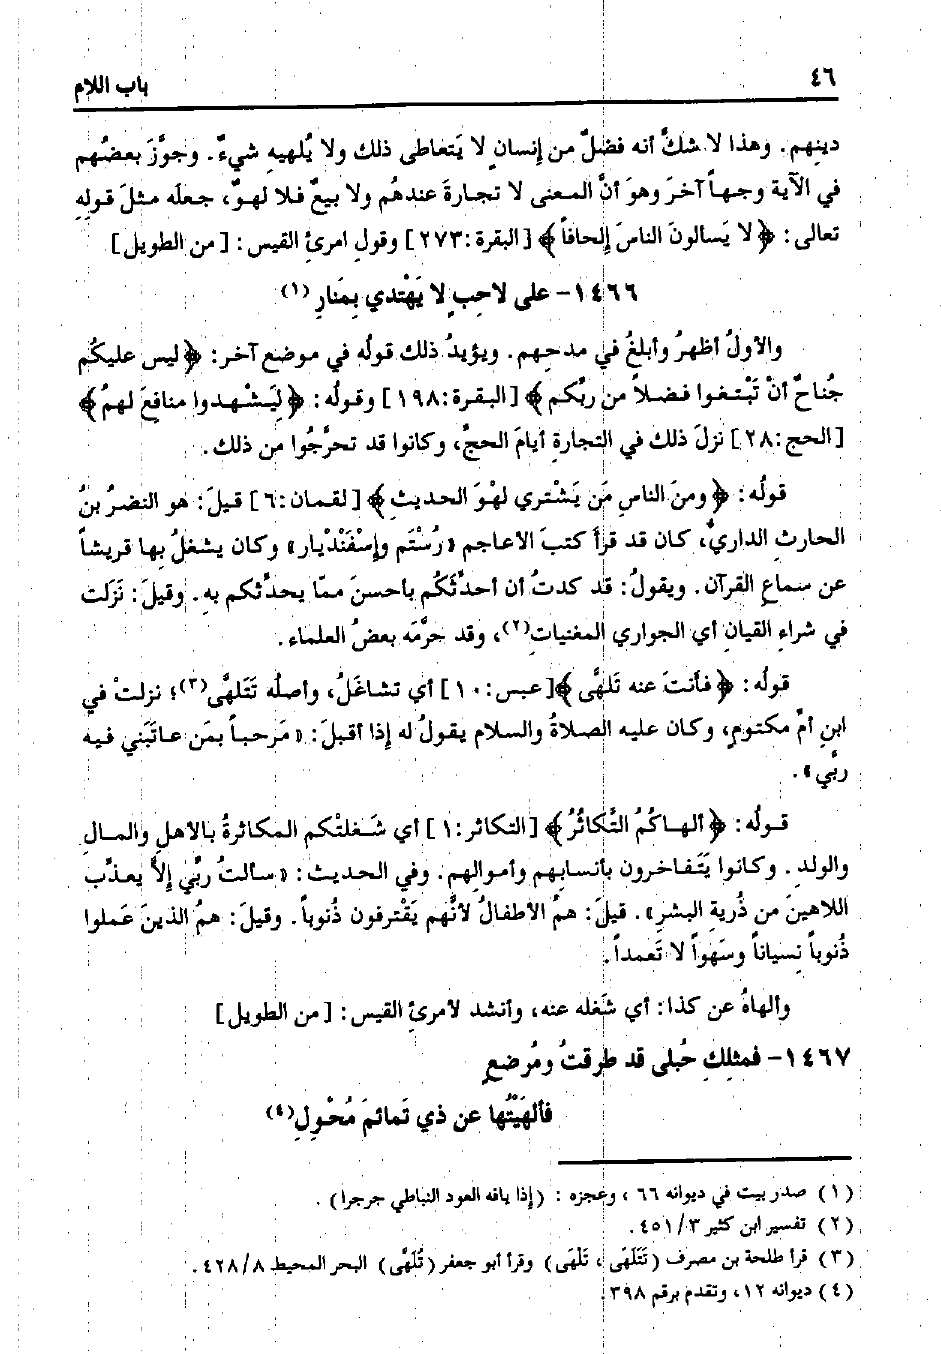 ٤٦
باب اللام
دينِهم. وهذا لا شكَّ أنه فضلٌ من إنسانٍ لا يَتعاطى ذلك ولا يُلهيهِ شيءٌ. وجوَّزَ بعضُهم
في الآية وجهاً آخرَ وهوَ أنَّ المعنى لا تجارةَ عندهُم ولا بيعٌ فلا لهوٌ، جعلَه مثلَ قولِهِ
تعالى: ﴿لا يَسألونَ الناسَ إلحافاً﴾ [البقرة:٢٧٣] وقولِ امرئِ القيس: [من الطويل]
١٤٦٦- على لاحِبٍ لا يَهْتدي بِمَنارِ (١)
والأولُ أظهرُ وأبلغُ في مدحِهم. ويؤيدُ ذلك قولُه في موضعٍ آخر: ﴿ليس عليكُم
جُناحٌ أنْ تَبْتغوا فضلاً من ربِّكم﴾ [البقرة:١٩٨] وقولُه: ﴿لِيَشْهدوا منافعَ لهمْ﴾
[الحج:٢٨] نزلَ ذلك في التجارةِ أيامَ الحجِّ، وكانوا قد تحرَّجُوا من ذلك.
قولُه: ﴿ومنَ الناسِ مَن يَشْتري لهْوَ الحديثِ﴾ [لقمان:٦] قيلَ: هو النضرُ بنُ
الحارثِ الداريُّ، كان قد قرأَ كتبَ الأعاجم «رُسْتَم وإسْفَنْديار» وكان يشغلُ بها قريشاً
عن سماعِ القرآن. ويقولُ: قد كدتُ أن أحدِّثَكُم بأحسنَ ممّا يحدِّثكم بهِ. وقيلَ: نَزَلت
في شراءِ القيانِ أي الجواري المغنياتِ(٢)، وقد حرَّمَه بعضُ العلماء.
قولُه: ﴿فأنتَ عنه تَلَهَّى﴾[عبس:١٠] أي تشاغَلُ، وأصلُه تَتَلهَّى(٣)؛ نزلتْ في
ابنِ أمِّ مكتومٍ، وكان عليه الصلاةُ والسلام يقولُ له إذا أقبلَ: «مَرحباً بمَن عاتَبَني فيه
ربِّي».
قولُه: ﴿ألهاكُمُ التَّكاثُرُ﴾ [التكاثر:١] أي شَغلتْكم المكاثرةُ بالأهلِ والمالِ
والولدِ. وكانوا يَتَفاخرون بأنسابِهم وأموالِهم. وفي الحديث: «سألتُ ربِّي إلاَّ يعذِّب
اللاهينَ من ذُريةِ البشرِ». قيلَ: همُ الأطفالُ لأنَّهم يَقْترفون ذُنوباً. وقيلَ: همُ الذينَ عَملوا
ذُنوباً نِسياناً وسَهواً لا تَعمداً.
وألهاهُ عن كذا: أي شَغله عنه، وأنشد لأمرئِ القيس: [من الطويل]
١٤٦٧- فمثلِكِ حُبلى قد طرقتُ ومُرضعٍ
فألهَيْتُها عن ذي تَمائمَ مُحْوِلِ(٤)
(١) صدر بيت في ديوانه ٦٦ ، وعجزه : (إذا يافه العود النباطي جرجرا) .
(٢) تفسير ابن كثير ٤٥١/٣.
(٣) قرأ طلحة بن مصرف (تَتَلَهَى، تَلْهَى) وقرأ أبو جعفر (تُلَهَّى) البحر المحيط ٤٢٨/٨.
(٤) ديوانه ١٢، وتقدم برقم ٣٩٨.